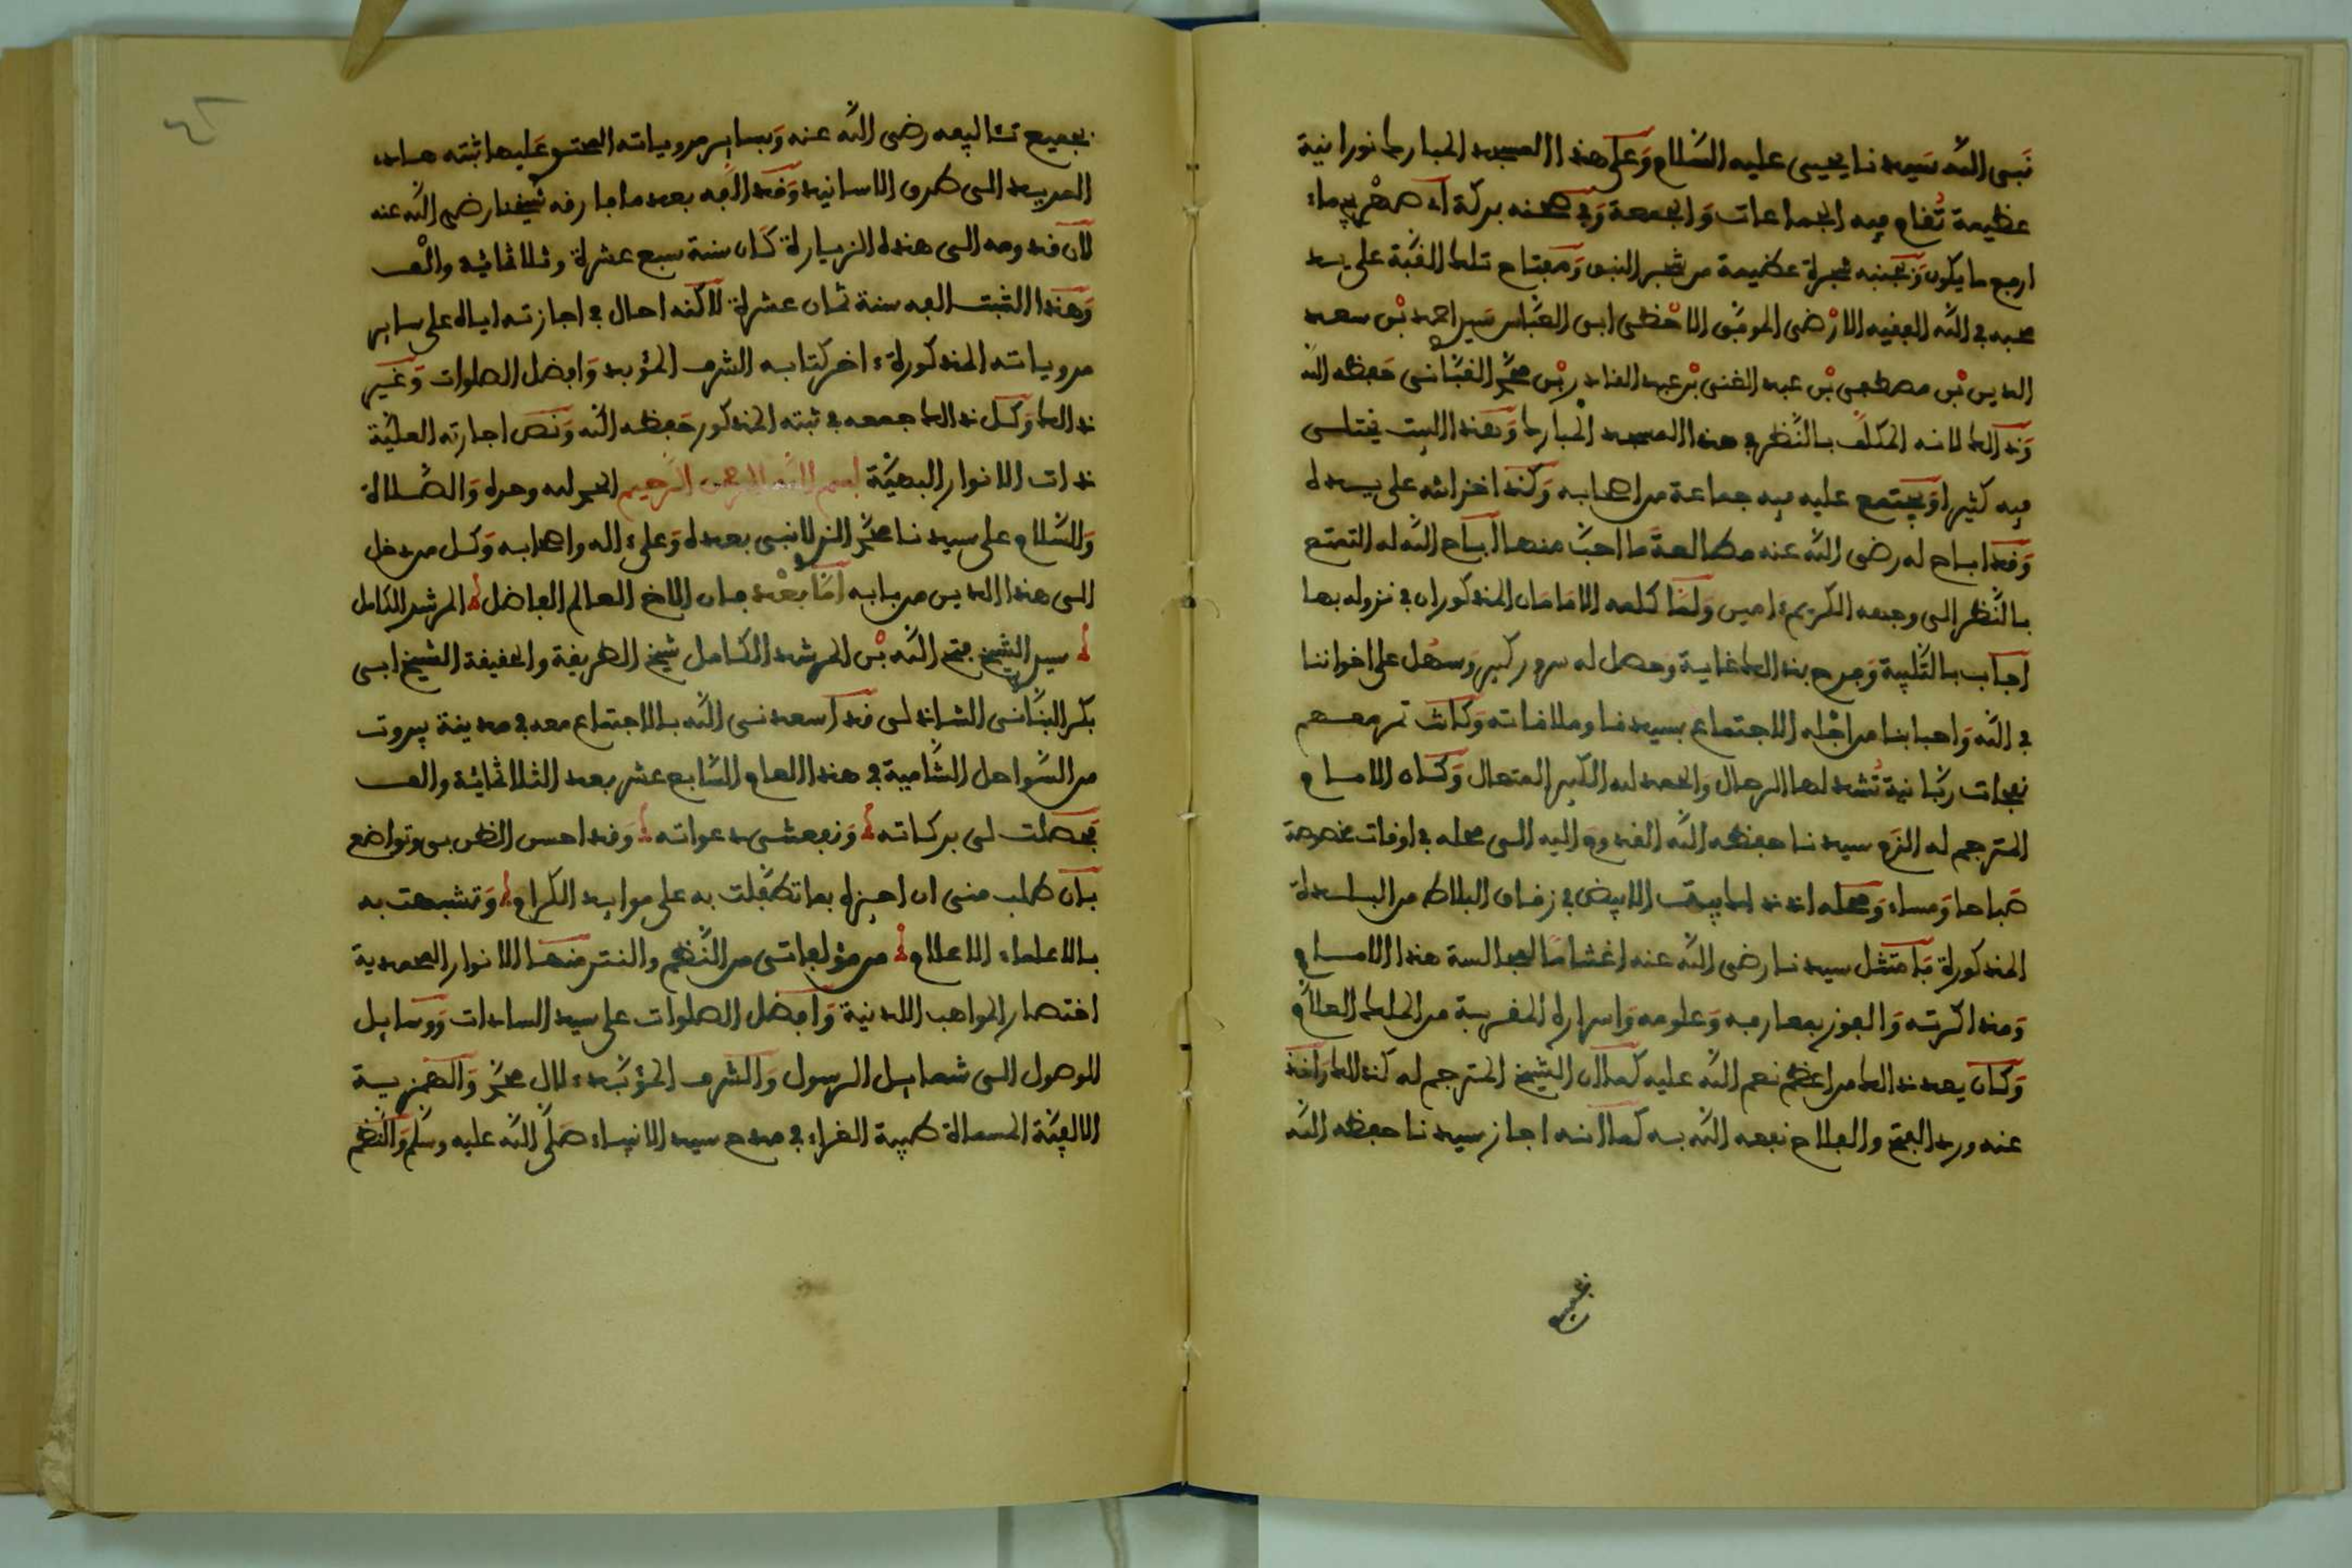 نبى الله سيدنا يحيى عليه السلام وعلى هذا المسجد المبارك نورانية
عظيمة تقام فيه الجماعات والجمعة وفى صحنه بركة اى صهريج ماء
ارفع ما يكون وبجنبه شجرة عظيمة من شجر النبق ومفتاح تلك القبة على يد
محبه فى الله الفقيه الارضى الموفق الاحظى ابى العباس سيدى احمد بن سعد
الدين بن مصطفى بن عبد الغنى بن عبد القادر بن محمد القبانى حفظه الله
وذلك لانه المكلف بالنظر فى هذا المسجد المبارك وبهذا البيت يختلى
فيه كثيرا ويجتمع عليه فيه جماعة من اصحابه وكذا خزانته على يده
وقد اباح له رضى الله عنه مطالعة ما احب منها اباح الله له التمتع
بالنظر الى وجهه الكريم ءامين ولما كلمه الامامان المذكوران فى نزوله بها
اجاب بالتلبية وفرح بذلك غاية وحصل له سرور كبير وسهل على اخواننا
فى الله واحبابنا من اجله الاجتماع بسيدنا وملاقاته وكانت تمر معهم
نفحات ربانية تشد لها الرحال والحمد لله الكبير المتعال وكان الامام
المترجم له الزم سيدنا حفظه الله القدوم اليه الى محله فى اوقات مخصوصة
صباحا ومساء ومحله اذ ذاك البيت الابيض فى زقاق البلاط من البلدة
المذكورة فامتثل سيدنا رضى الله عنه اغتناما لمجالسة هذا الامام
ومذاكرته والفوز بمعارفه وعلومه واسراره المقربة من الملك العلام
وكان يعد ذلك من اعظم نعم الله عليه كما ان الشيخ المترجم له كذلك واخذ
عنه ورد الفتح والفلاح نفعه الله به كما انه اجاز سيدنا حفظه الله
بجميع
بجميع تئاليفه رضى الله عنه وبساير مروياته المحتو عليها ثبته هاد
المريد الى طرق الاسانيد وقد الفه بعد ما فارقه شيخنا رضى الله عنه
لان قدومه الى هذه الزيارة كان سنة سبع عشرة وثلاثمائة والف
وهذا الثبت الفه سنة ثمان عشرة لاكنه احال فى اجازته اياه على ساير
مروياته المذكورة ءاخر كتابه الشرف المؤبد وافضل الصلوات وغير
ذلك وكل ذلك جمعه فى ثبته المذكور حفظه الله ونص اجازته العلية
ذات الانوار البهية بسم الله الرحمن الرحيم الحمد لله وحده والصلاة
والسلام على سيدنا محمد الذى لا نبى بعده وعلى ءاله واصحابه وكل من دخل
الى هذا الدين من بابه اما بعد فان الاخ العالم الفاضل المرشد الكامل
سيدى الشيخ فتح الله بن المرشد الكامل شيخ الطريقة والحقيقة الشيخ ابى
بكر البنانى الشاذلى قد اسعدنى الله بالاجتماع معه فى مدينة بيروت
من السواحل الشامية فى هذا العام السابع عشر بعد الثلاثمائة والف
فحصلت لى بركاته ونفعتنى دعواته وقد احسن الظن بى وتواضع
بان طلب منى ان اجيزه بما تطفلت به على موايد الكرام وتشبهت به
بالاعلماء الاعلام من مؤلفاتى من النظم والنثر منها الانوار المحمدية
اختصار المواهب اللدنية وافضل الصلوات على سيد السادات ووسايل
الوصول الى شمايل الرسول والشرف المؤبد ءلال محمد والهمزية
الالفية المسماة طيبة الغراء فى مدح سيد الانبياء صلى الله عليه وسلم والنظم